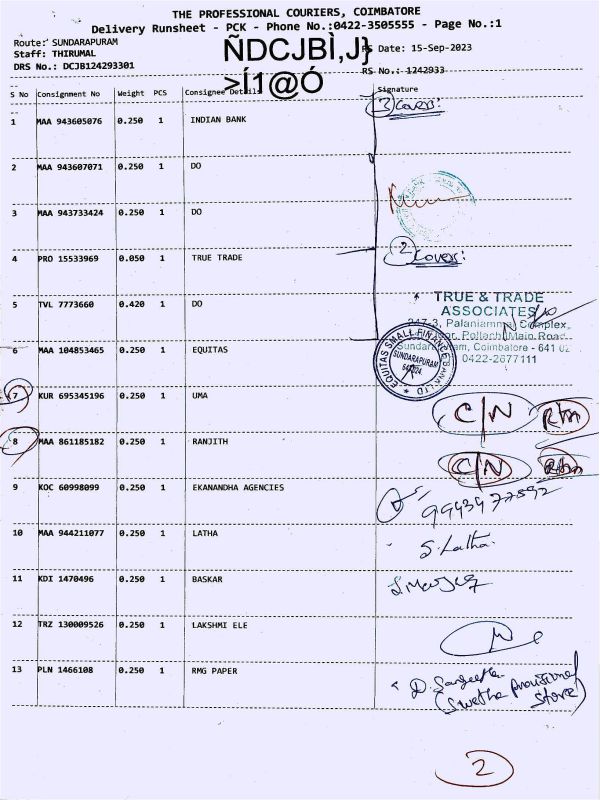 THE PROFESSIONAL COURIERS, COIMBATORE
Delivery Runsheet - PCK - Phone No.:0422-3505555 - Page No.:1
Route: SUNDARAPURAM
Staff: THIRUMAL
DRS No.: DCJB124293301
ÑDCJBÌ,J}
>Í1@Ó
RS Date: 15-Sep-2023
RS No.: 1242933
S No Consignment No Weight PCS Consignee Details Signature
1 MAA 943605076 0.250 1 INDIAN BANK
3 Covers:
2 MAA 943607071 0.250 1 DO
3 MAA 943733424 0.250 1 DO
4 PRO 15533969 0.050 1 TRUE TRADE
2 Covers:
5 TVL 7773660 0.420 1 DO
TRUE & TRADE
ASSOCIATES
247-3, Palaniammal Complex,
Pollachi Main Road
Sundarapuram, Coimbatore - 641 02
0422-2677111
6 MAA 104853465 0.250 1 EQUITAS
EQUITAS SMALL FINANCE BANK LTD
SUNDARAPURAM
641024
7 KUR 695345196 0.250 1 UMA
C/N Rtn
8 MAA 861185182 0.250 1 RANJITH
C/N Rtn
9 KOC 60998099 0.250 1 EKANANDHA AGENCIES
10 MAA 944211077 0.250 1 LATHA
S. Latha.
11 KDI 1470496 0.250 1 BASKAR
12 TRZ 130009526 0.250 1 LAKSHMI ELE
13 PLN 1466108 0.250 1 RMG PAPER
D. Sangeetha
(Swetha provisional
store)
2